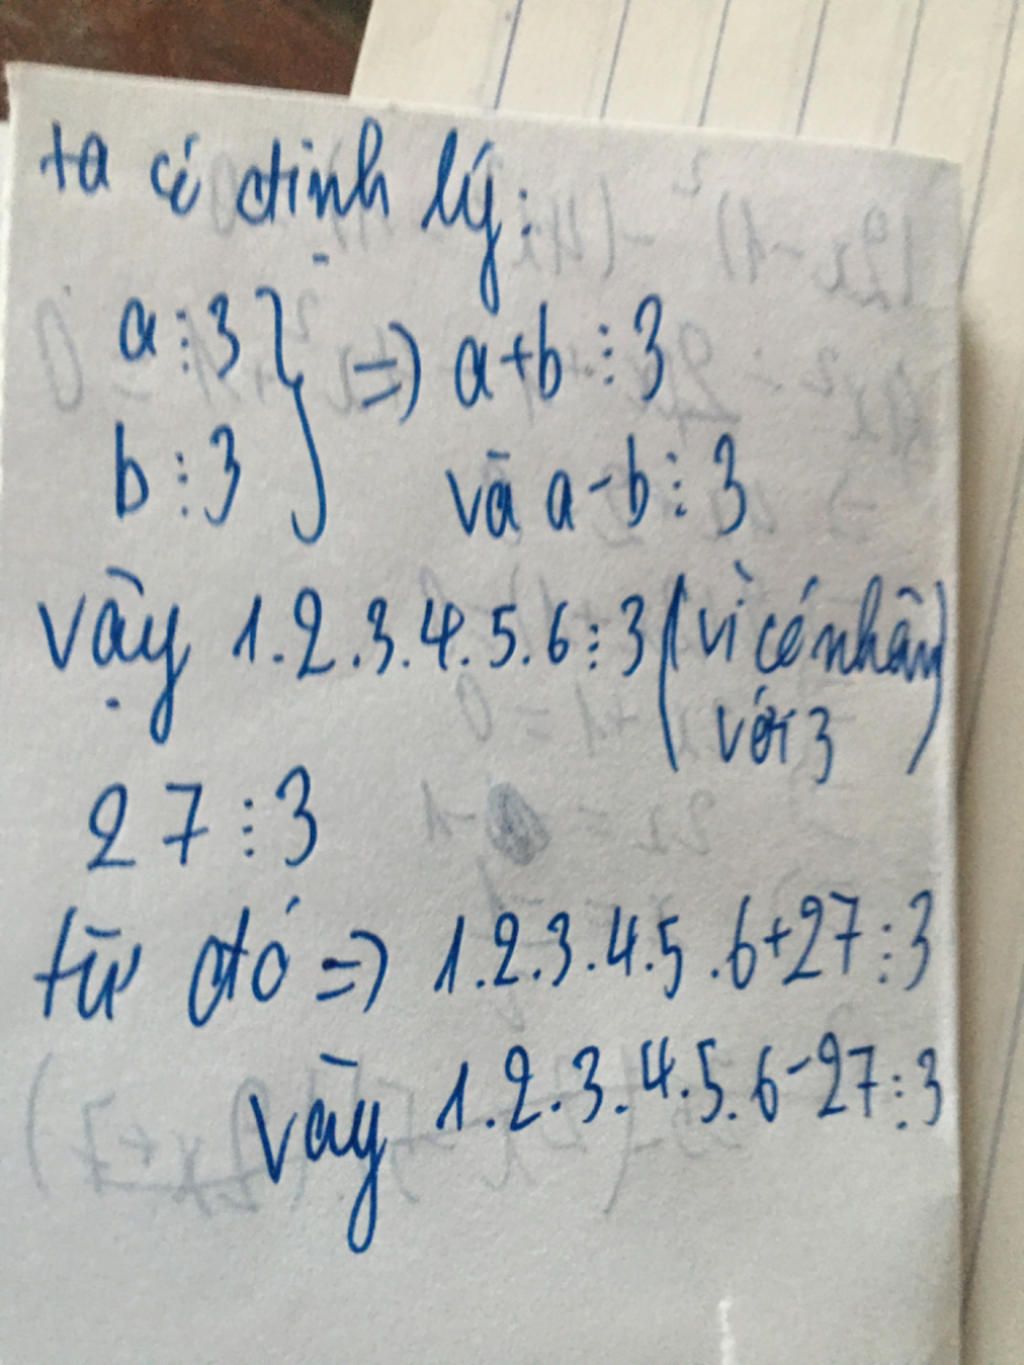 ta có định lý:
a ⋮ 3
b ⋮ 3 } => a+b ⋮ 3
và a-b ⋮ 3
vậy 1.2.3.4.5.6 ⋮ 3 (vì có nhân
với 3)
27 ⋮ 3
từ đó => 1.2.3.4.5.6+27 ⋮ 3
vậy 1.2.3.4.5.6-27 ⋮ 3